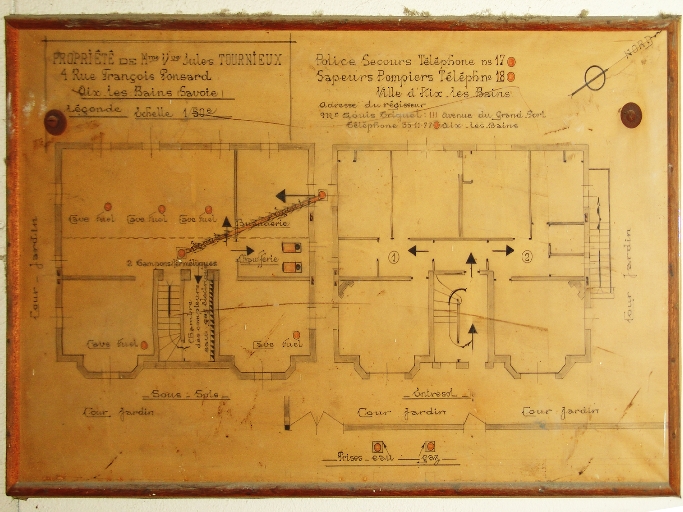 PROPRIÉTÉ DE Mme Vve Jules TOURNIEUX
4 Rue François Ponsard
Aix les Bains Savoie
Légende Echelle 1/50e
Police Secours Téléphone no 17
Sapeurs Pompiers Téléphne 18
Ville d'Aix les Bains
Adresse du régisseur
Mr Louis 111 avenue du Grand Port
Téléphone Aix les Bains
NORD
Cour Jardin
Cave fuel Cave fuel Cave fuel
Buanderie
2 Tampons
Chaufferie
Chambre des compteurs
Cave fuel
Cave fuel
1
2
Cour Jardin
Sous-Sols
Entresol
Cour Jardin
Cour Jardin
Cour Jardin
Prises eau gaz